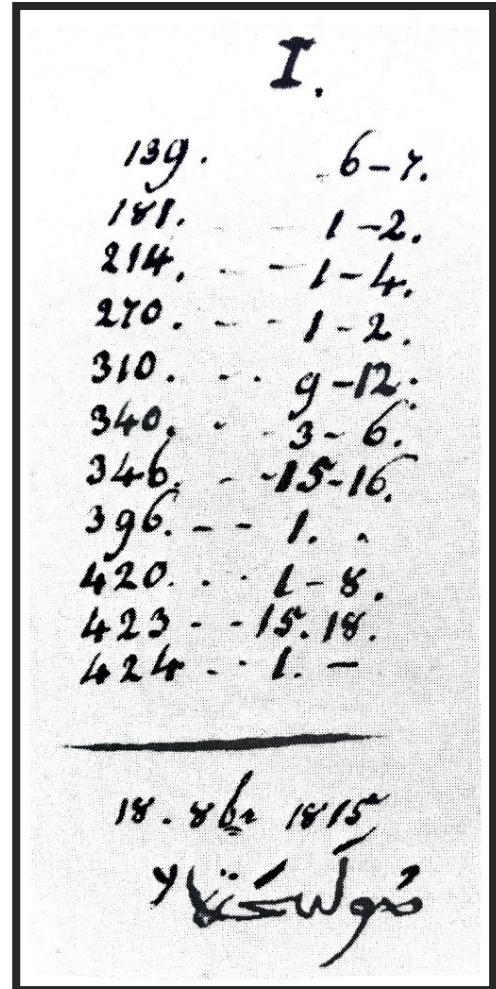 I.
139. - 6-7.
181. - - 1-2.
214. . - - 1-4.
270. - - 1-2.
310. . . 9-12.
340. . - 3-6.
346. - -15-16.
396. - - 1. .
420. . . 1-8.
423 - - 15. 18.
424 . . 1. —
18. 8br 1815